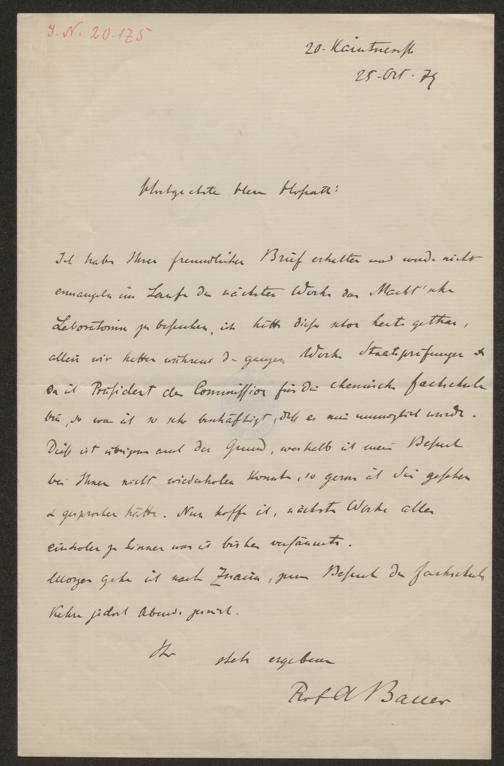 J. N. 20.175
20. Kärntnerstr
25. Oct. 79
Hochgeehrter Herr Hofrath!
Ich habe Ihren freundlichen Brief erhalten und werde nicht
ermangeln im Laufe der nächsten Woche das
Laboratorium zu besuchen, ich hätte dieß schon heute gethan,
allein wir hatten während der ganzen Woche Staatsprüfungen &
da ich Präsident der Commission für die chemische Fachschule
bin, so war ich so sehr beschäftigt, daß es mir unmöglich wurde.
Dieß ist übrigens auch der Grund, weshalb ich meinen Besuch
bei Ihnen nicht wiederholen konnte, so gerne ich Sie gesehen
& gesprochen hätte. Nun hoffe ich, nächste Woche alles
einholen zu können was ich bisher versäumte.
Morgen gehe ich nach Znaim, zum Besuch der Fachschule
kehre jedoch Abends zurück.
Ihr stets ergebener
Prof A Bauer